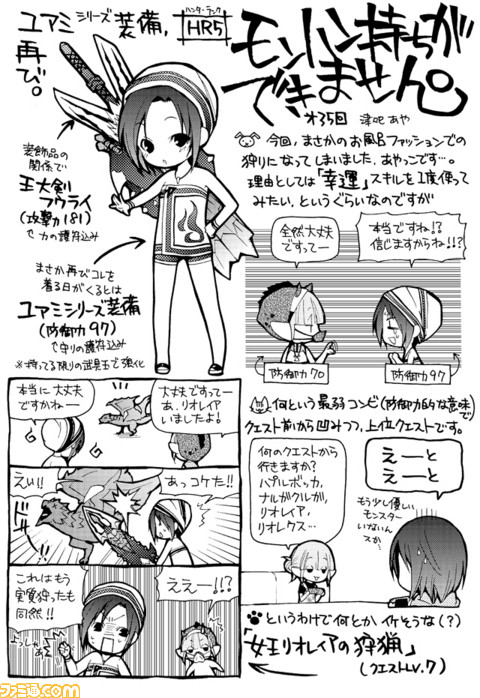 モンハン持ちが
できません。
第35回 津吹 あや
ユアミシリーズ装備、
再び。
ハンターランク
HR5
装飾品の
関係で
王大剣
フウライ
(攻撃力181)
で力の護符込み
まさか再びコレを
着る日がくるとは
ユアミシリーズ装備
(防御力97)
で守りの護符込み
※持ってる限りの武具玉で強化
今回、まさかのお風呂ファッションでの
狩りになってしまいました、あやっこです…。
理由としては「幸運」スキルを1度使って
みたい、というぐらいなのですが
本当ですね!?
信じますからね!!?
全然大丈夫
ですってー
防御力70
防御力97
何という最弱コンビ(防御力的な意味で)
クエスト前から凹みつつ、上位クエストです。
えーと
えーと
何のクエストから
行きますか?
パプルポッカ、
ナルガクルガ、
リオレイア、
リオレクス…
もう少し優しい
モンスター
いないんス
か…
というわけで何とかイケそうな(?)
「女王リオレイアの狩猟」
(クエストLV.7)
大丈夫ですってー
あ、リオレイア
いましたよ!
本当に大丈夫
ですかねー
あっコケた!!
えいっ!!
ドッ
ええー!!?
これはもう
実質狩ったも
同然!!
よっしゃぁ
ファミ通.com